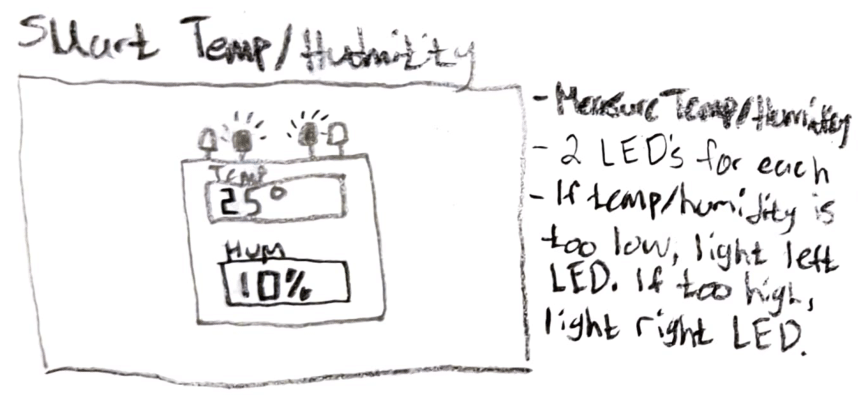 Smart Temp/Humidity
- Measure Temp/Humidity
- 2 LED's for each
- If temp/humidity is
too low, light left
LED. If too high,
light right LED.
Temp
25°
Hum
10%